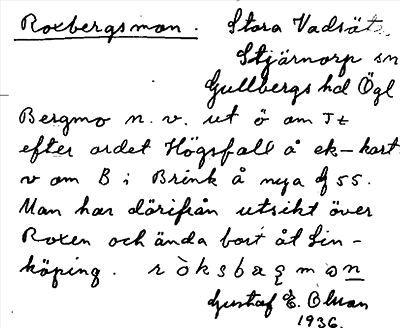 Roxbergsmon. Stora Vadsät.
Stjärnorp sn
Gullbergs hd Ögl
Bergmo n. v. ut ö om Jt
efter ordet Högsfall å ek-kart.
v om B i Brink å nya 55.
Man har därifrån utsikt över
Roxen och ända bort åt Lin-
köping.
Gustaf E. Olsson
1936.